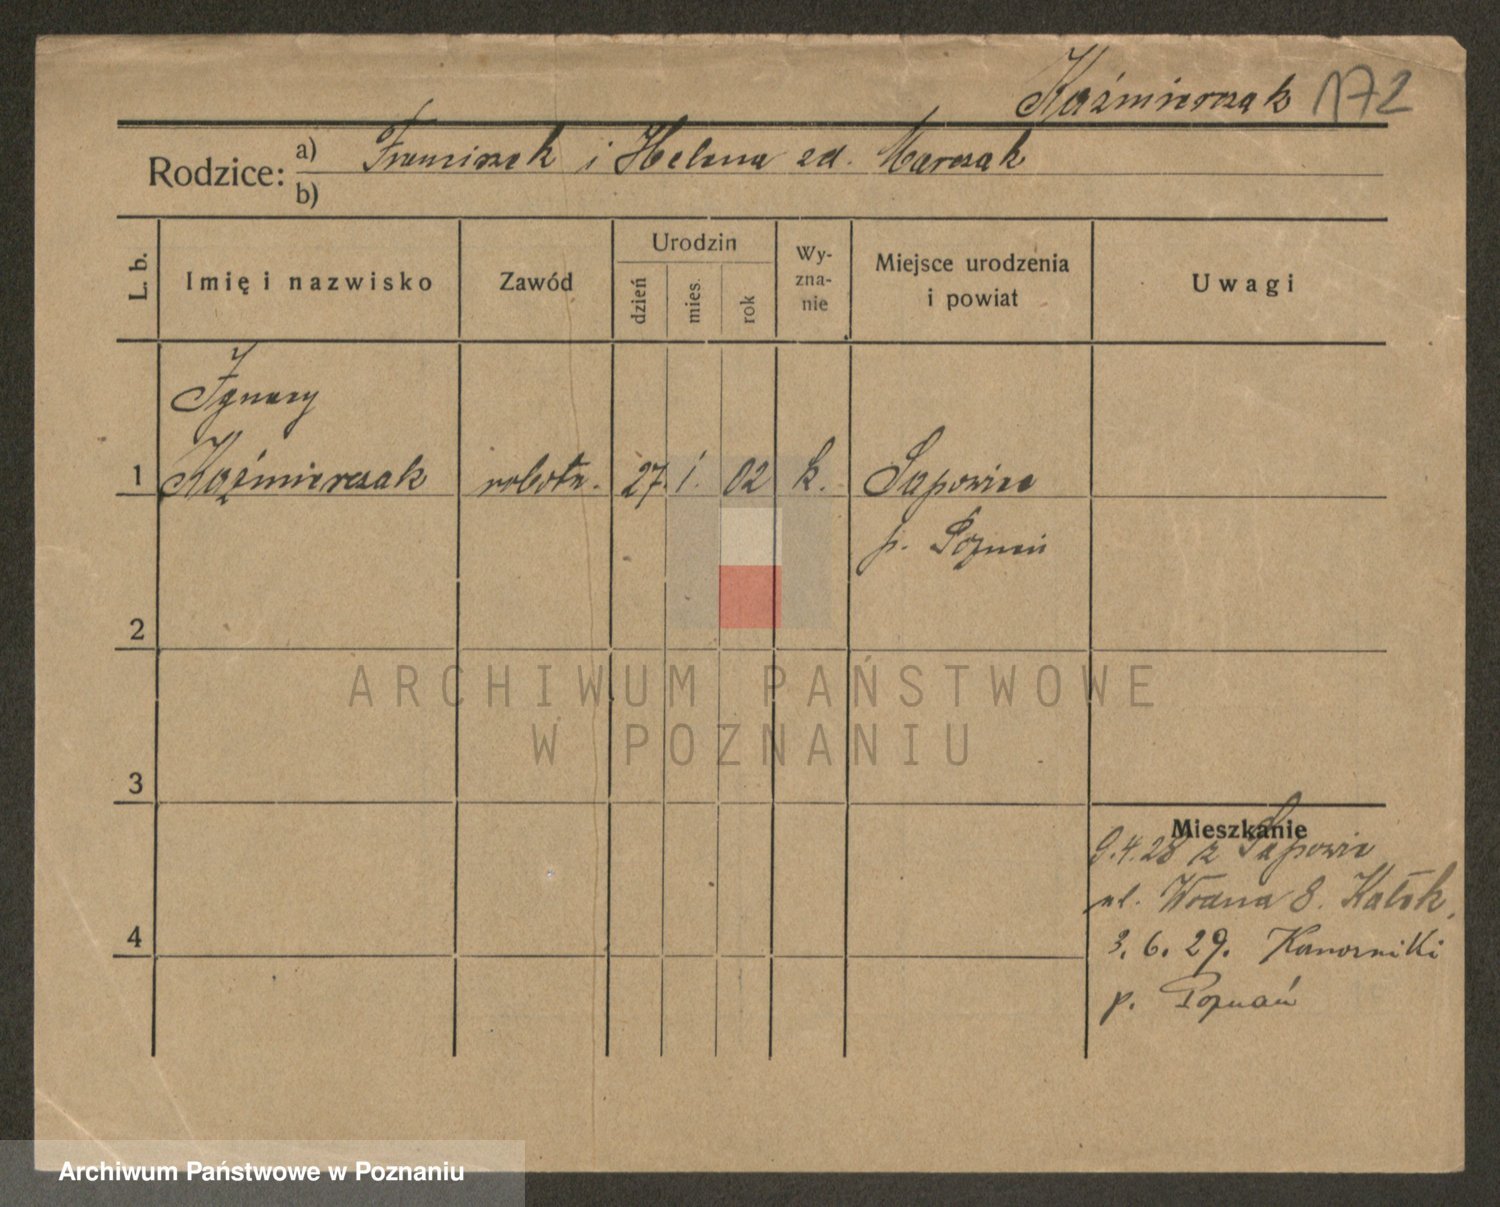 Kaźmierczak 172
Rodzice: a) Franciszek i Helena zd. Marczak
b)
L. b.
Imię i nazwisko
Zawód
Urodzin
dzień
mies.
rok
Wy-
zna-
nie
Miejsce urodzenia
i powiat
Uwagi
Ignacy
1 Kaźmierczak robotn. 27. 1. 02 k. Sapowice
p. Poznań
2
ARCHIWUM PAŃSTWOWE
W POZNANIU
3
Mieszkanie
9.4.28 z Sapowic
ul. Wodna 8.
4
3. 6. 29.
p. Poznań
Archiwum Państwowe w Poznaniu